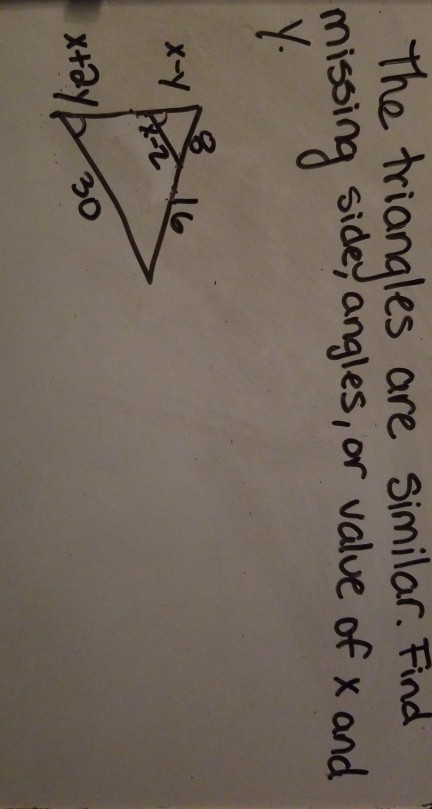 The triangles are similar. Find
missing side, angles, or value of x and
y.
x-y
8
x-2
16
x+2y
30